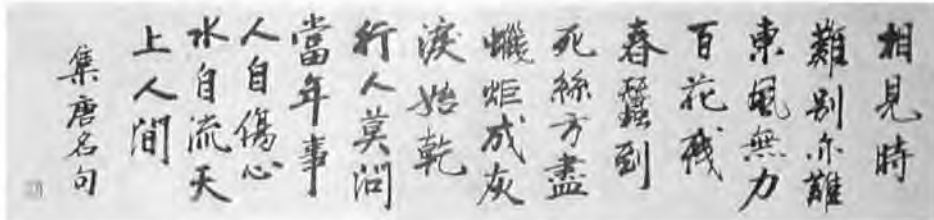 相見時
難別亦難
東風無力
百花殘
春蠶到
死絲方盡
蠟炬成灰
淚始乾
行人莫問
當年事
人自傷心
水自流天
上人間
集唐名句